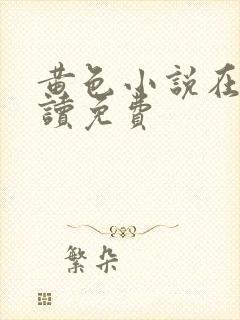 黄色小説在
讀免費
繁朵